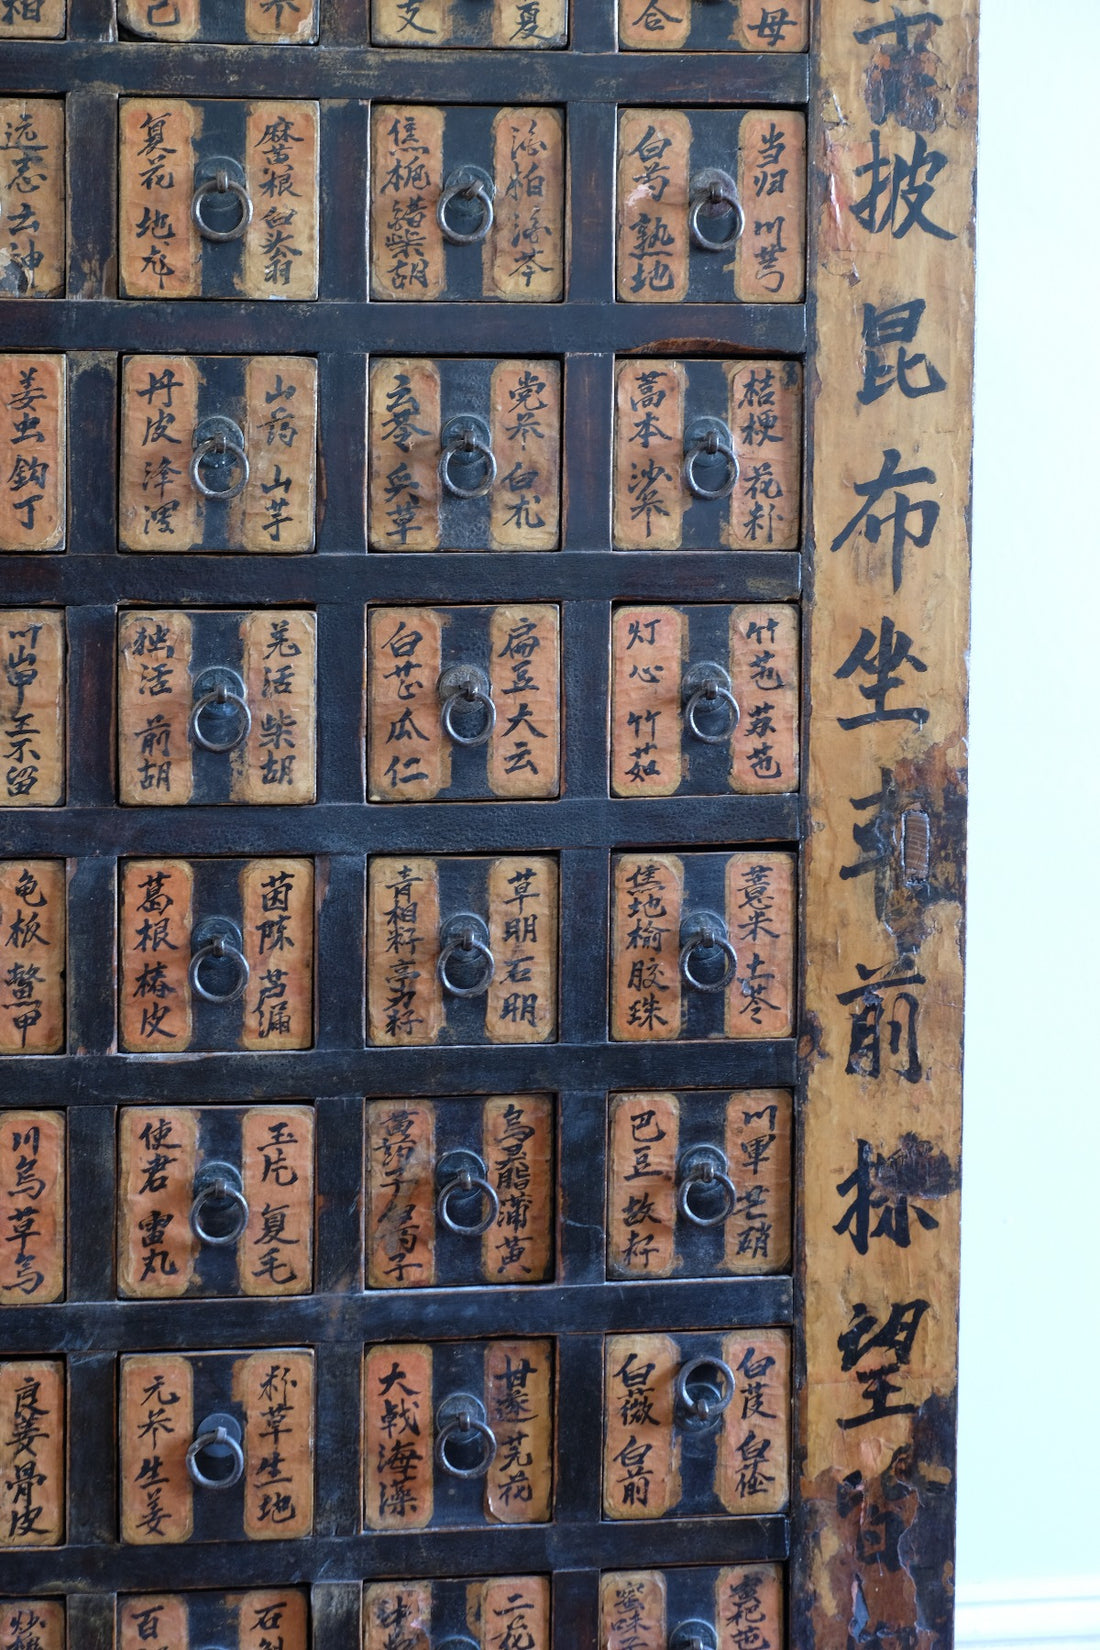 母
合
夏
支
己
相
披昆布坐
前
望
当归 川芎
白芍 熟地
焦栀 醋柴胡
麻黄根 白头翁
复花 地龙
远志 云神
桔梗 花粉
蒿本 沙参
党参 白术
云苓 炙草
山药 山芋
丹皮 泽泻
姜虫 钩丁
竹茹
灯心 竹茹
扁豆 大云
白芷 瓜仁
羌活 柴胡
独活 前胡
王不留
薏米 土苓
焦地榆 胶珠
草明 石明
青相籽 亭力籽
茵陈 芦
葛根 椿皮
龟板 鳖甲
川军 芒硝
巴豆 故籽
蒲黄
黄药子
玉片 复毛
使君 雷丸
川乌 草乌
白芨
白薇 白前
甘遂 芫花
大戟 海藻
粉草 生地
元参 生姜
良姜 骨皮
二花
石
百